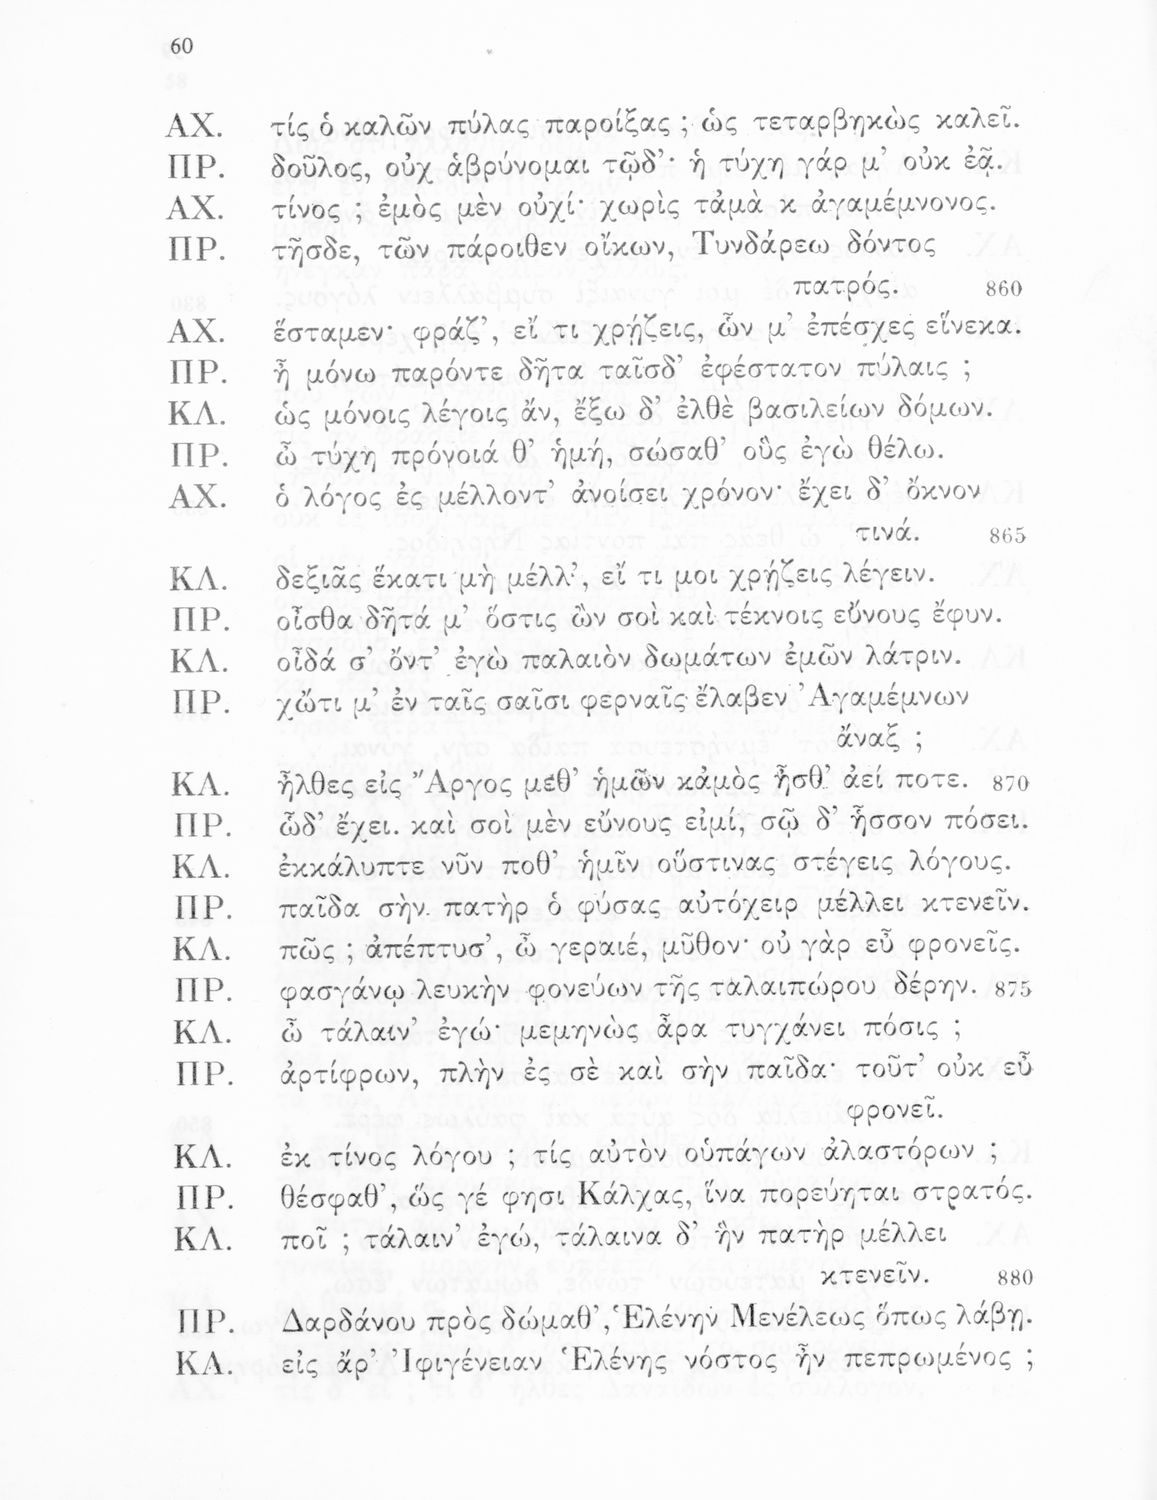 60
ΑΧ. τίς ὁ καλῶν πύλας παροίξας ; ὡς τεταρβηκὼς καλεῖ.
ΠΡ. δοῦλος, οὐχ ἁβρύνομαι τῷδ’· ἡ τύχη γάρ μ’ οὐκ ἐᾷ.
ΑΧ. τίνος ; ἐμὸς μὲν οὐχί· χωρὶς τἀμὰ κ ἀγαμέμνονος.
ΠΡ. τῆσδε, τῶν πάροιθεν οἴκων, Τυνδάρεω δόντος
πατρός. 860
ΑΧ. ἕσταμεν· φράζ’, εἴ τι χρῄζεις, ὧν μ’ ἐπέσχες εἵνεκα.
ΠΡ. ἦ μόνω παρόντε δῆτα ταῖσδ’ ἐφέστατον πύλαις ;
ΚΛ. ὡς μόνοις λέγοις ἄν, ἔξω δ’ ἐλθὲ βασιλείων δόμων.
ΠΡ. ὦ τύχη πρόνοιά θ’ ἡμή, σώσαθ’ οὓς ἐγὼ θέλω.
ΑΧ. ὁ λόγος ἐς μέλλοντ’ ἀνοίσει χρόνον· ἔχει δ’ ὄκνον
τινά. 865
ΚΛ. δεξιᾶς ἕκατι μὴ μέλλ’, εἴ τι μοι χρῄζεις λέγειν.
ΠΡ. οἶσθα δῆτά μ’ ὅστις ὢν σοὶ καὶ τέκνοις εὔνους ἔφυν.
ΚΛ. οἶδά σ’ ὄντ’ ἐγὼ παλαιὸν δωμάτων ἐμῶν λάτριν.
ΠΡ. χὤτι μ’ ἐν ταῖς σαῖσι φερναῖς ἔλαβεν ’Αγαμέμνων
ἄναξ ;
ΚΛ. ἦλθες εἰς ῎Αργος μεθ’ ἡμῶν κἀμὸς ἦσθ’ ἀεί ποτε. 870
ΠΡ. ὧδ’ ἔχει. καὶ σοὶ μὲν εὔνους εἰμί, σῷ δ’ ἧσσον πόσει.
ΚΛ. ἐκκάλυπτε νῦν ποθ’ ἡμῖν οὕστινας στέγεις λόγους.
ΠΡ. παῖδα σὴν πατὴρ ὁ φύσας αὐτόχειρ μέλλει κτενεῖν.
ΚΛ. πῶς ; ἀπέπτυσ’, ὦ γεραιέ, μῦθον· οὐ γὰρ εὖ φρονεῖς.
ΠΡ. φασγάνῳ λευκὴν φονεύων τῆς ταλαιπώρου δέρην. 875
ΚΛ. ὦ τάλαιν’ ἐγώ· μεμηνὼς ἆρα τυγχάνει πόσις ;
ΠΡ. ἀρτίφρων, πλὴν ἐς σὲ καὶ σὴν παῖδα· τοῦτ’ οὐκ εὖ
φρονεῖ.
ΚΛ. ἐκ τίνος λόγου ; τίς αὐτὸν οὑπάγων ἀλαστόρων ;
ΠΡ. θέσφαθ’, ὥς γέ φησι Κάλχας, ἵνα πορεύηται στρατός.
ΚΛ. ποῖ ; τάλαιν’ ἐγώ, τάλαινα δ’ ἣν πατὴρ μέλλει
κτενεῖν. 880
ΠΡ. Δαρδάνου πρὸς δώμαθ’, ῾Ελένην Μενέλεως ὅπως λάβῃ.
ΚΛ. εἰς ἄρ’ ’Ιφιγένειαν ῾Ελένης νόστος ἦν πεπρωμένος ;